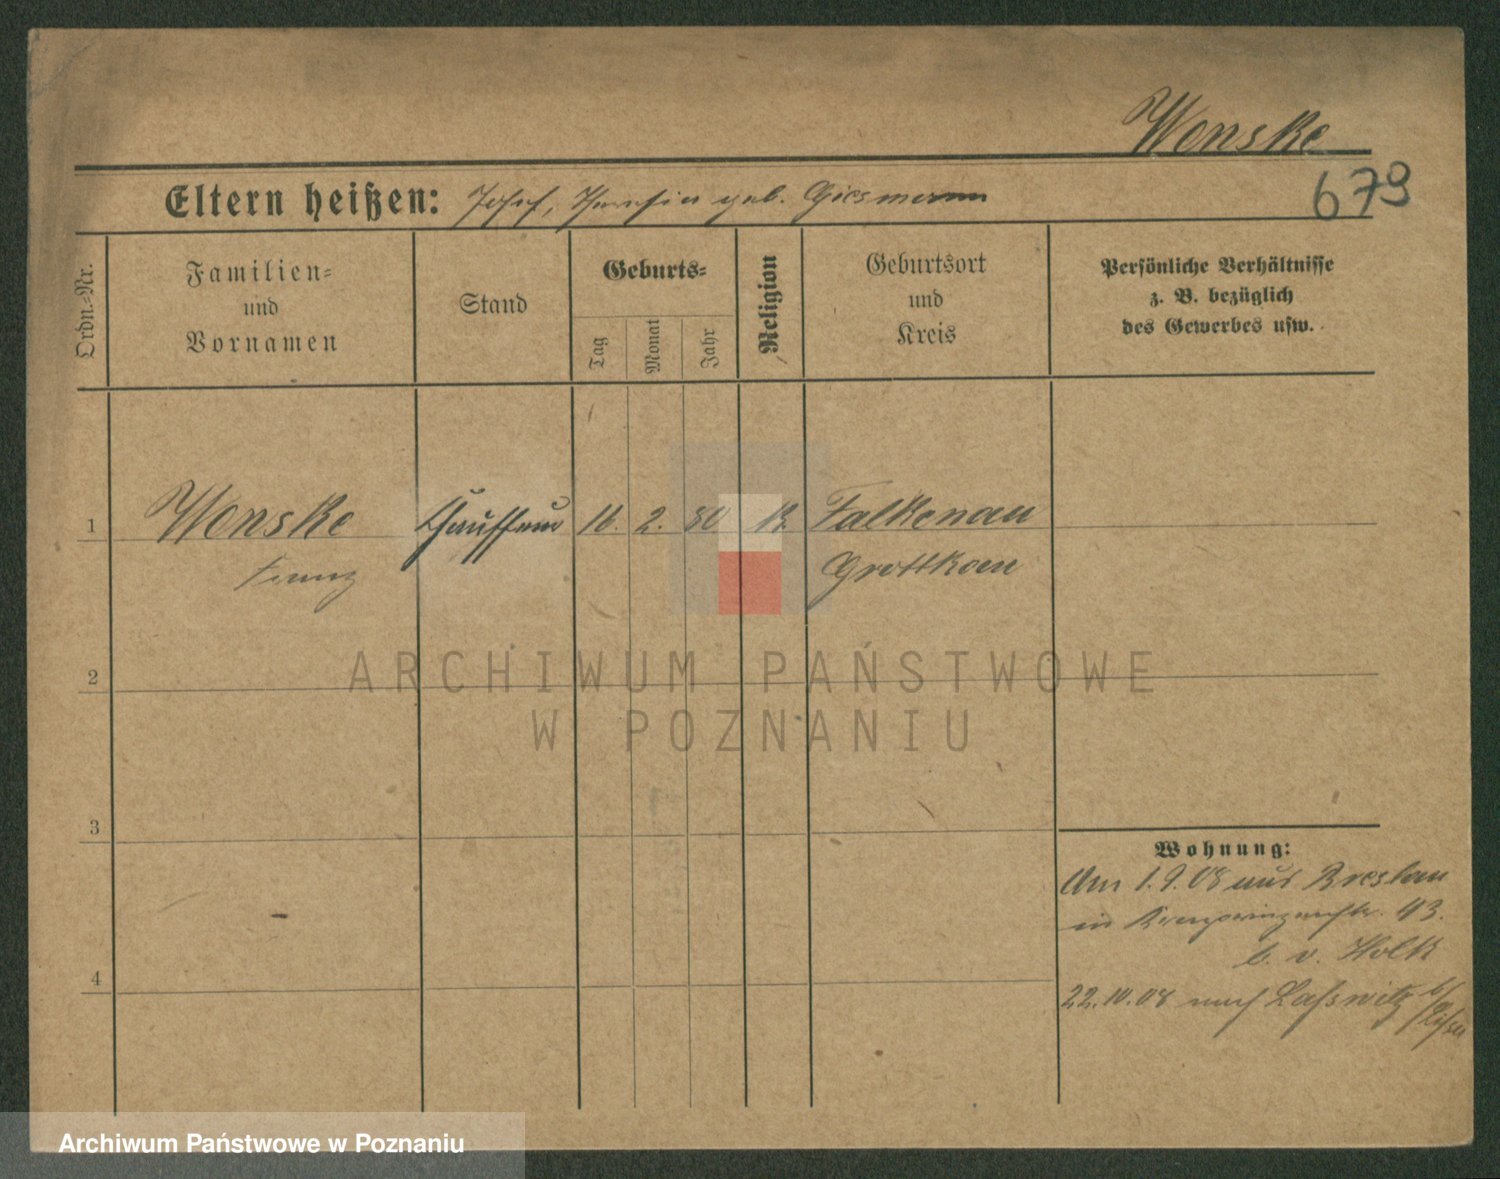 Wonske
Eltern heißen: Josef, Theresia geb. Giesmann
679
Ordn.-Nr.
Familien-
und
Vornamen
Stand
Geburts-
Tag
Monat
Jahr
Religion
Geburtsort
und
Kreis
Persönliche Verhältnisse
z. B. bezüglich
des Gewerbes usw.
1 Wonske Chauffeur 16. 2. 80 K. Falkenau
Franz Grottkau
2
3
4
Wohnung:
Am 1.9.08 aus Breslau
in 43.
b. v. Holk
22.10.08 nach Laßwitz b/Lissa
ARCHIWUM PAŃSTWOWE
W POZNANIU
Archiwum Państwowe w Poznaniu